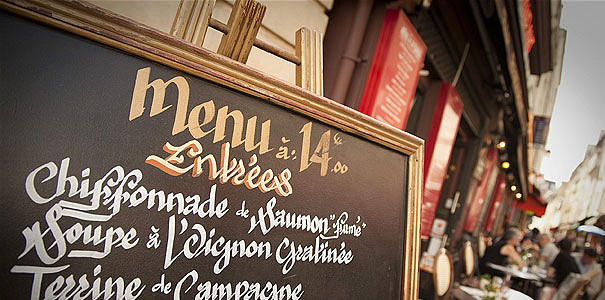 Menu à: 14€.00
Entrées
Chiffonnade de Saumon "fumé"
Soupe à l'Oignon Gratinée
Terrine de Campagne